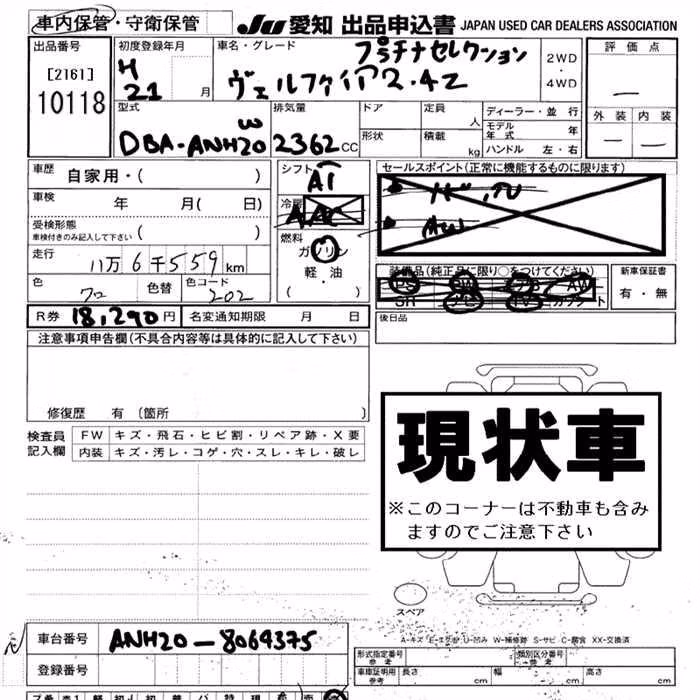 車内保管・守衛保管
JU 愛知 出品申込書 JAPAN USED CAR DEALERS ASSOCIATION
出品番号
[2161]
10118
初度登録年月
H
21 月
車名・グレード
プラチナセレクション
ヴェルファイア2.4Z
2WD
・
4WD
評価点
—
外装 内装
— —
型式
DBA-ANH20W
排気量
2362 CC
ドア
形状
定員
人
積載
kg
ディーラー・並行
モデル年式 年
ハンドル 左・右
車歴 自家用・( )
車検 年 月( 日)
受検形態
車検付きのみ記入して下さい ( )
走行
11万6千559km
色 クロ 色替 色コード 202
シフト
AT
冷房
AAC
燃料
ガソリン
・
軽・油
( ・ )
セールスポイント(正常に機能するものに限ります)
ナビ,TV
AW
装備品(純正品に限り○をつけてください)
PS PW エアB AW
SR ナビ TV カワシート
新車保証書
有・無
R券 18,290円 名変通知期限 月 日
後日品
注意事項申告欄(不具合内容等は具体的に記入して下さい)
修復歴 有 (箇所 )
検査員
記入欄
FW キズ・飛石・ヒビ割・リペア跡・X要
内装 キズ・汚レ・コゲ・穴・スレ・キレ・破レ
現状車
※このコーナーは不動車も含み
ますのでご注意下さい
スペア
A-キズ E-エクボ U-凹み W-補修跡 S-サビ C-腐食 XX-交換済
車台番号 ANH20-8064375
登録番号
形式指定番号
参考
類別区分番号
参考
車庫証明用
参考
長さ cm 幅 cm 高さ cm